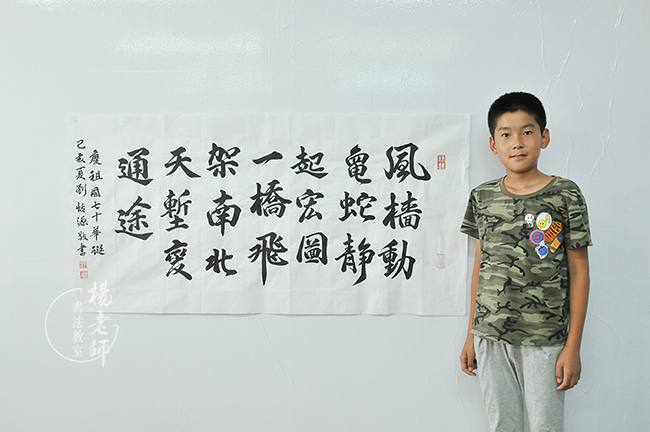 風檣動
龜蛇静
起宏圖
一橋飛
架南北
天塹變
通途
慶祖國七十華誕
己亥夏劉源敬書
楊老師
書法教室